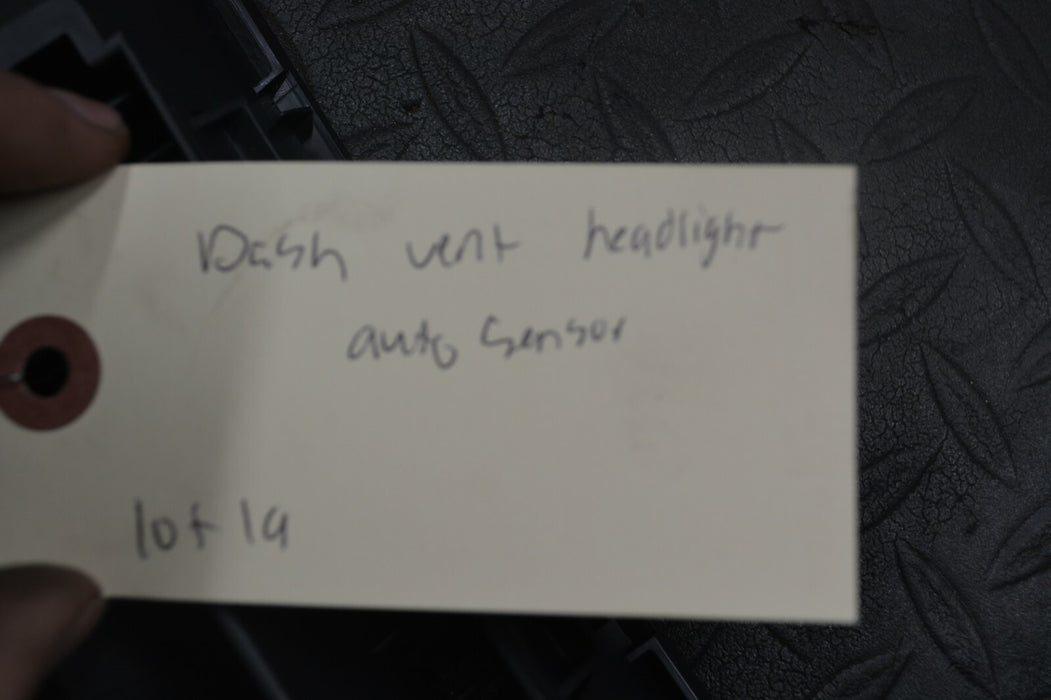 Dash vent headlight
auto Sensor
lot 19